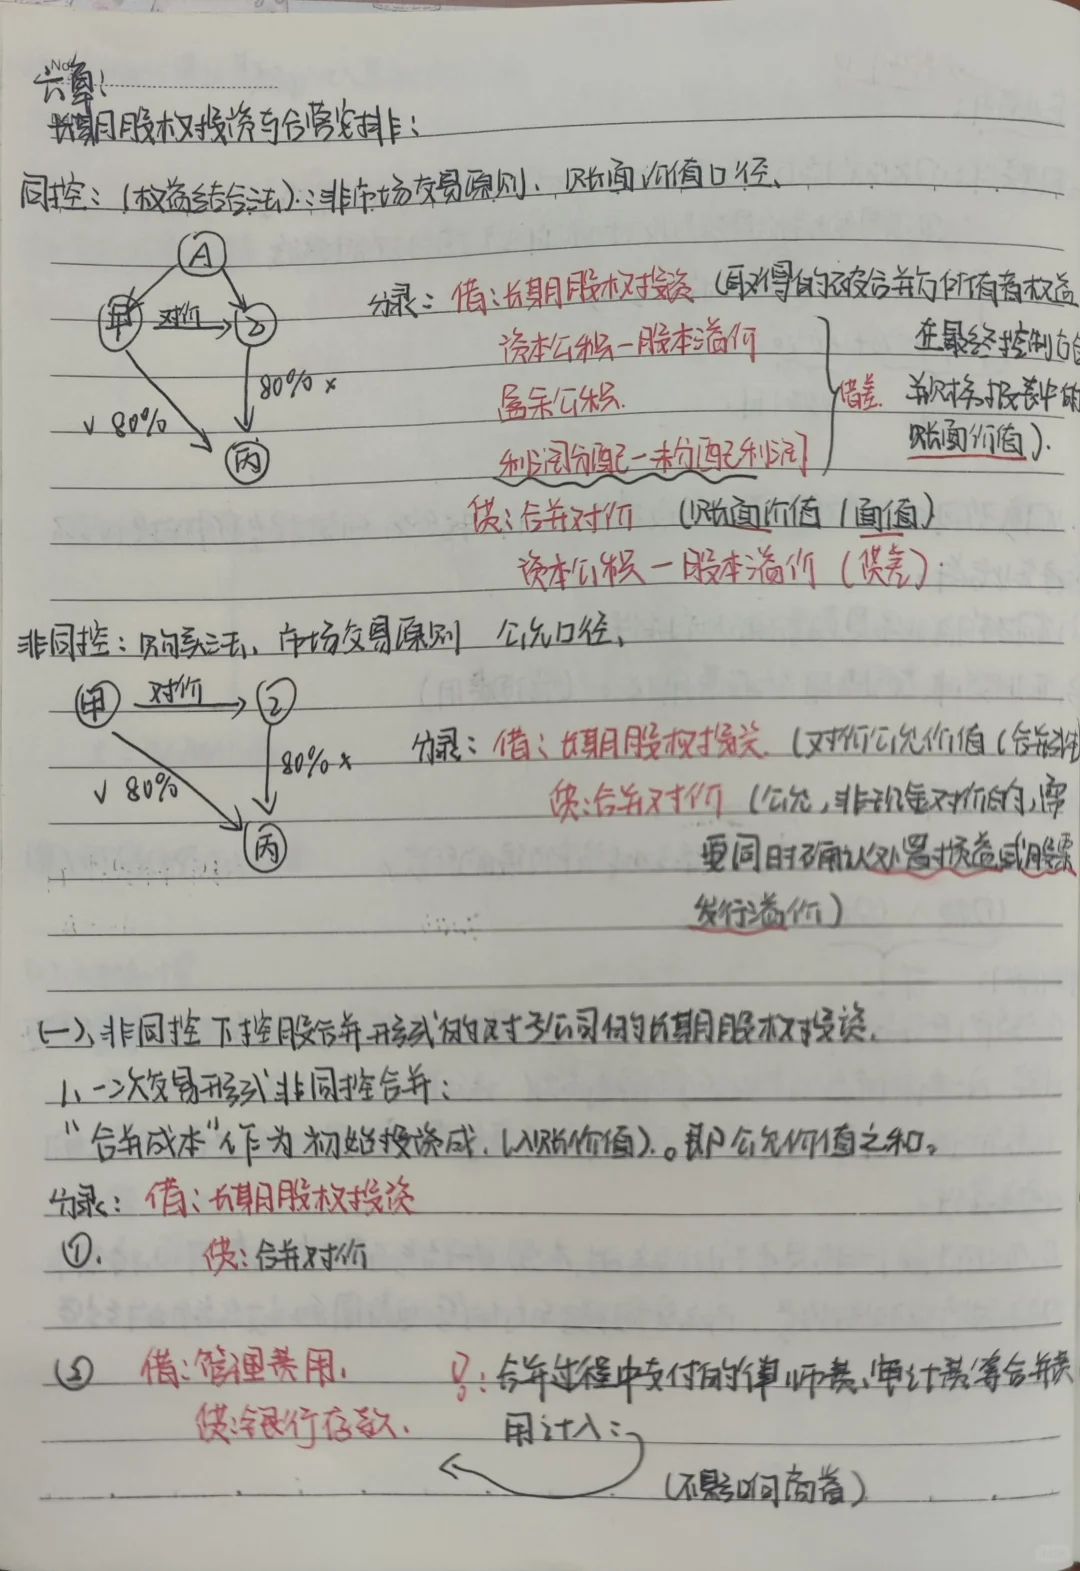 No
六章:
长期股权投资与合营安排:
同控:(权益结合法):非市场交易原则、账面价值口径、
A
甲 对价 乙
80% ×
√ 80%
丙
分录: 借:长期股权投资 (取得的被合并方所有者权益
资本公积—股本溢价 在最终控制方合
盈余公积. 借差 并财务报表中的
利润分配—未分配利润 账面价值).
贷:合并对价 (账面价值/面值)
资本公积—股本溢价 (贷差).
非同控:购买法、市场交易原则 公允口径、
甲 对价 乙
80% ×
√ 80%
丙
分录: 借:长期股权投资. (对价公允价值(合并
贷:合并对价 (公允,非现金对价的,需
要同时确认处置损益或股票
发行溢价)
(一)、非同控下控股合并形式的对子公司的长期股权投资.
1、一次交易形式非同控合并:
"合并成本"作为初始投资成.(入账价值).。即公允价值之和。
分录: 借:长期股权投资
①. 贷:合并对价
② 借:管理费用. :合并过程中支付的律师费、审计费等合并费
贷:银行存款. 用计入:
(不影响商誉)